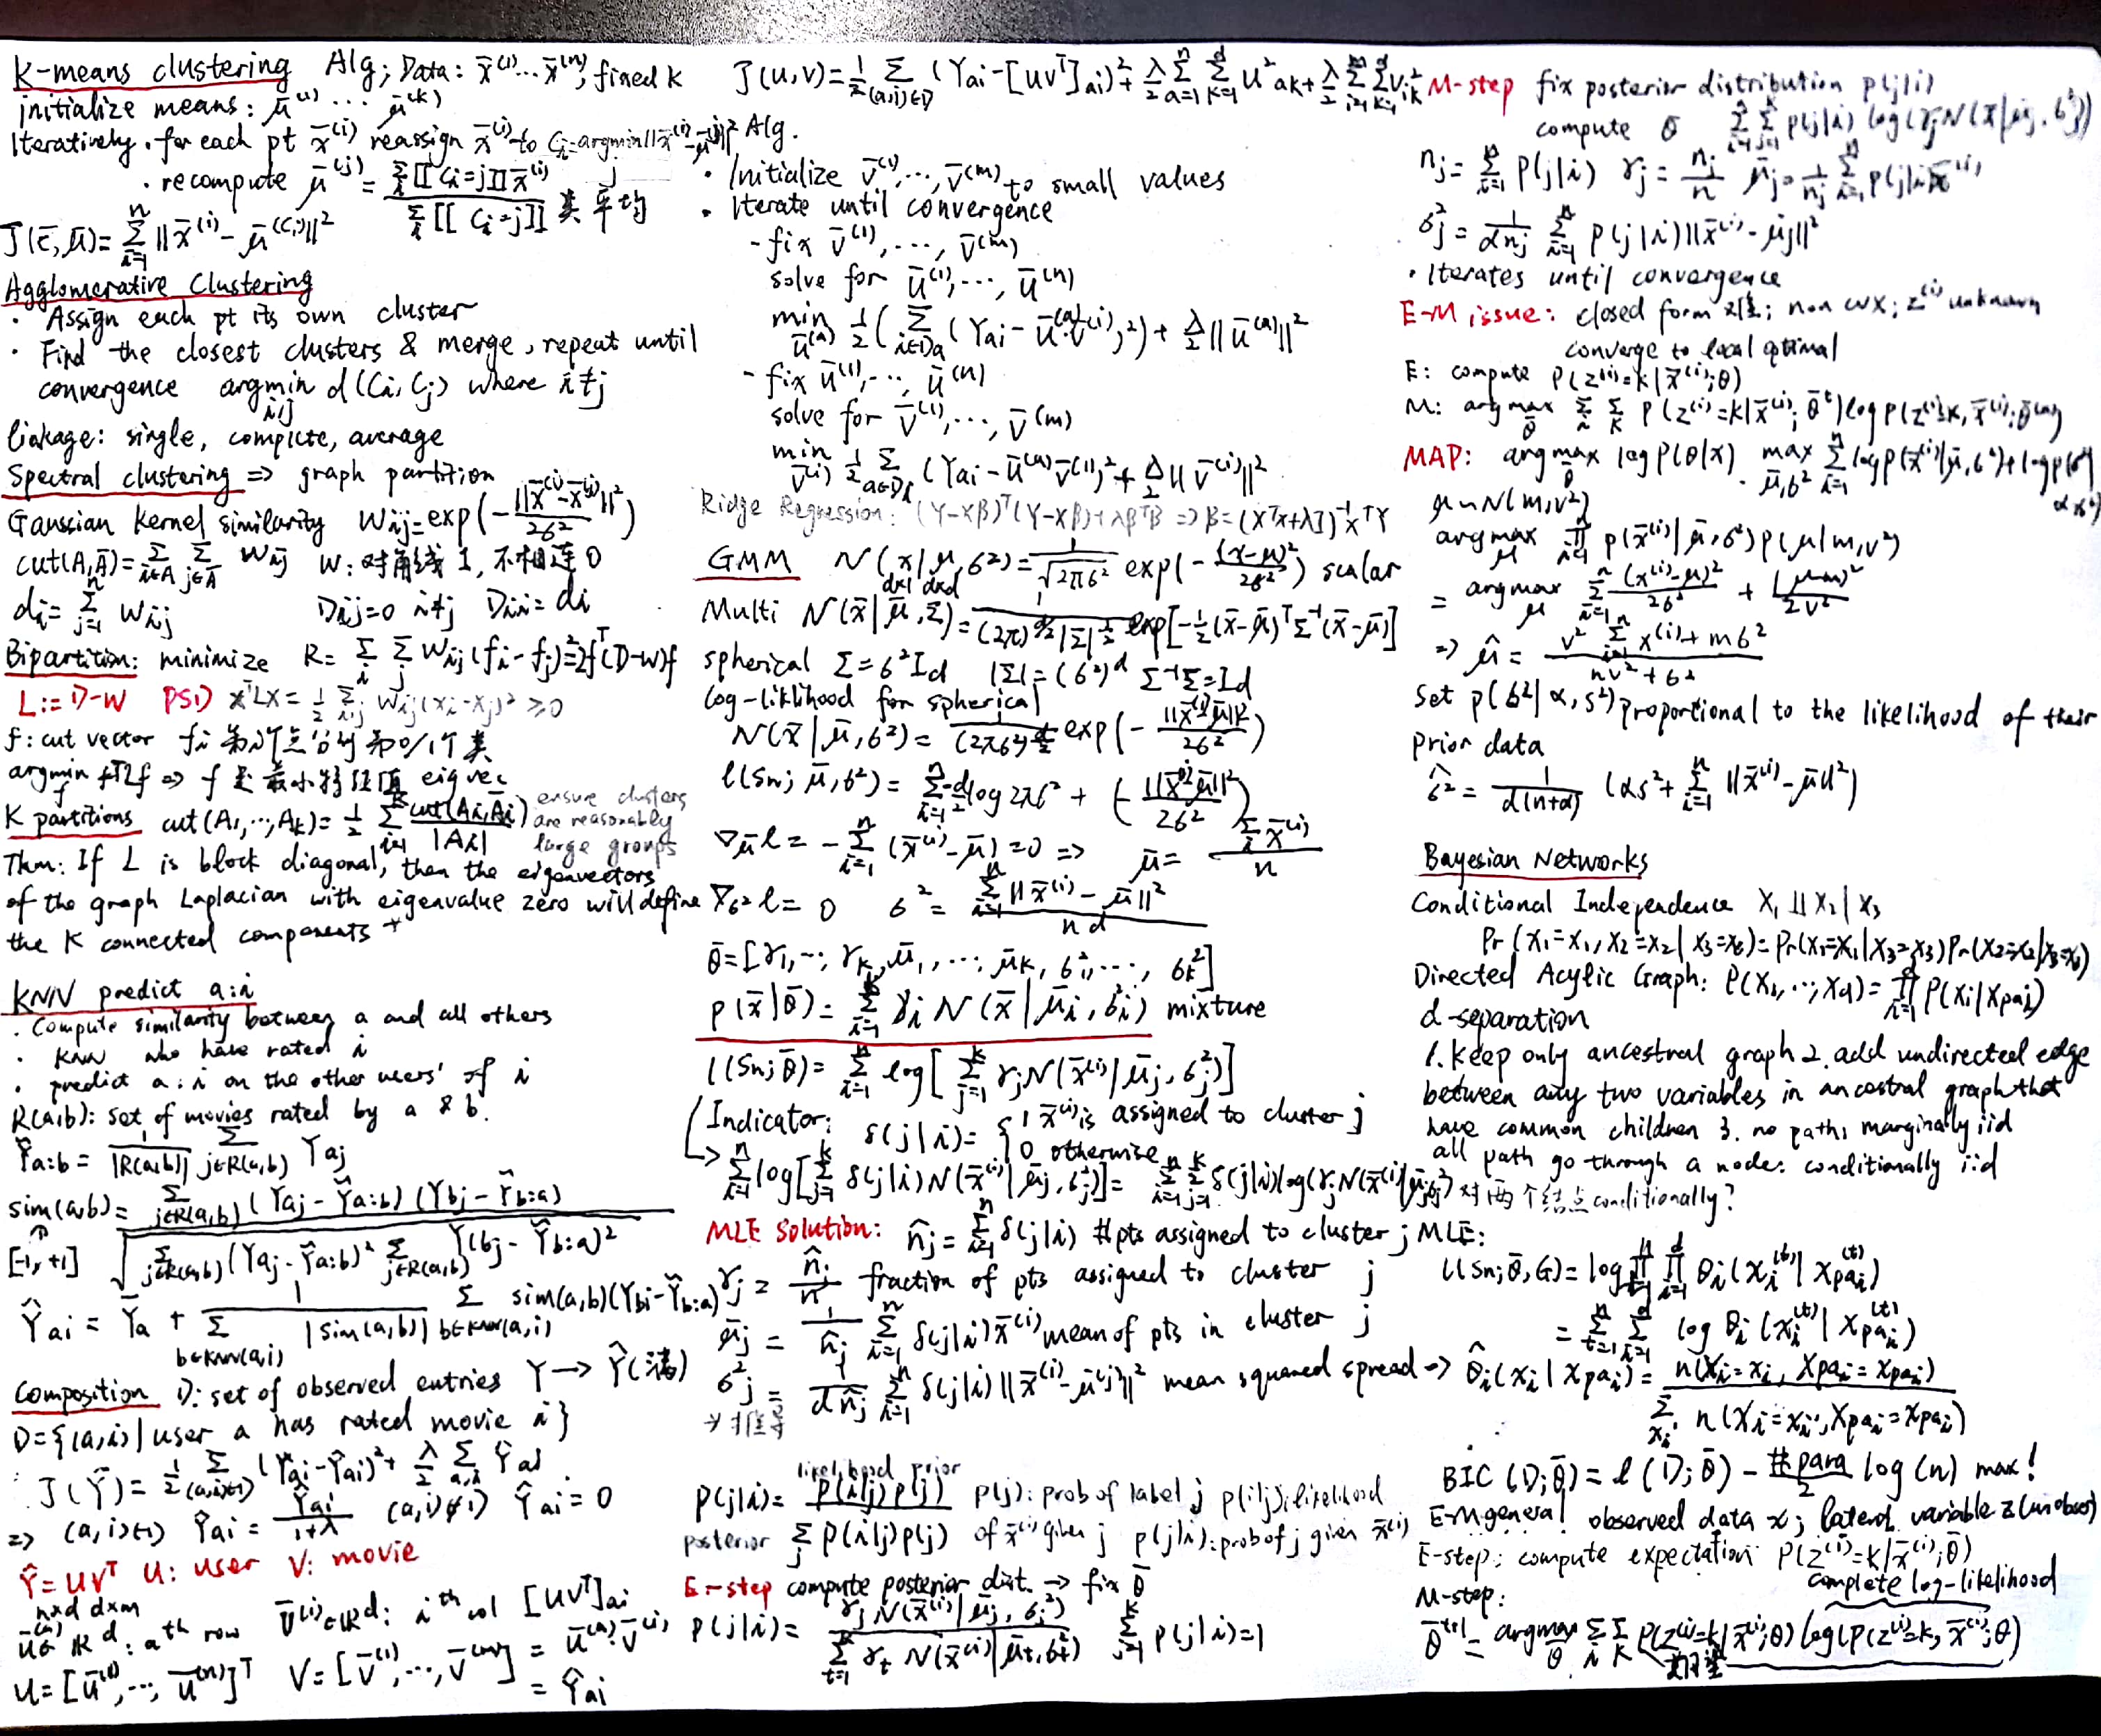 K-means clustering Alg; Data: x̄⁽¹⁾...x̄⁽ⁿ⁾, fixed k
initialize means: μ̄⁽¹⁾ ... μ̄⁽ᵏ⁾
Iteratively · for each pt x̄⁽ⁱ⁾ reassign x̄⁽ⁱ⁾ to Cᵢ=argmin_j ||x̄⁽ⁱ⁾-μ̄⁽ʲ⁾||²
· recompute μ̄⁽ʲ⁾ = Σᵢ[[Cᵢ=j]]x̄⁽ⁱ⁾ / Σᵢ[[Cᵢ=j]] 类平均
J(c̄, μ̄) = Σᵢ₌₁ⁿ ||x̄⁽ⁱ⁾ - μ̄⁽ᶜⁱ⁾||²
Agglomerative Clustering
· Assign each pt its own cluster
· Find the closest clusters & merge, repeat until
convergence argmin_{i,j} d(Ci, Cj) where i≠j
linkage: single, complete, average
Spectral clustering => graph partition
Gaussian kernel similarity Wij = exp(-||x̄⁽ⁱ⁾-x̄⁽ʲ⁾||² / 2σ²)
cut(A,Ā) = Σ_{i∈A} Σ_{j∈Ā} Wij W: 对角线 1, 不相连 0
di = Σⱼ₌₁ⁿ Wij Dij=0 i≠j Dii = di
Bipartition: minimize R = Σᵢ Σⱼ Wij(fi-fj)² = 2fᵀ(D-W)f
L := D-W PSD xᵀLx = 1/2 Σ_{i,j} Wij(xi-xj)² ≥ 0
f: cut vector fi 第i个点分为第0/1个类
argmin_f fᵀLf => f 是最小特征值 eigvec
K partitions cut(A₁,...,A_k) = 1/2 Σᵢ₌₁ᵏ cut(Ai,Āi)/|Ai| ensure clusters
are reasonably
large groups
Thm: If L is block diagonal, then the eigenvectors
of the graph Laplacian with eigenvalue zero will define
the K connected components
KNN predict a:i
· Compute similarity between a and all others
· KNN who have rated i
· predict a:i on the other users' of i
R(a,b): set of movies rated by a & b.
Ỹa:b = 1/|R(a,b)| Σ_{j∈R(a,b)} Yaj
sim(a,b) = Σ_{j∈R(a,b)} (Yaj - Ỹa:b)(Ybj - Ỹb:a)
[-1,+1] √(Σ_{j∈R(a,b)} (Yaj - Ỹa:b)² Σ_{j∈R(a,b)} (Ybj - Ỹb:a)²)
Ŷai = Ȳa + 1/Σ_{b∈KNN(a,i)} |sim(a,b)| Σ_{b∈KNN(a,i)} sim(a,b)(Ybi-Ỹb:a)
Composition D: set of observed entries Y → Ŷ(满)
D = {(a,i) | user a has rated movie i}
J(Ŷ) = 1/2 Σ_{(a,i)∈D} (Yai-Ŷai)² + λ/2 Σ_{a,i} Ŷai
=> (a,i)∈D Ŷai = Yai/(1+λ) (a,i)∉D Ŷai = 0
Ŷ = UVᵀ U: user V: movie
n×d d×m
ū⁽ᵃ⁾∈ℝᵈ: aᵗʰ row v̄⁽ⁱ⁾∈ℝᵈ: iᵗʰ col [UVᵀ]ai
U = [ū⁽¹⁾, ..., ū⁽ⁿ⁾]ᵀ V = [v̄⁽¹⁾, ..., v̄⁽ᵐ⁾] = ū⁽ᵃ⁾·v̄⁽ⁱ⁾
= Ŷai
J(U,V) = 1/2 Σ_{(a,i)∈D} (Yai-[UVᵀ]ai)² + λ/2 Σₐ₌₁ⁿ Σₖ₌₁ᵈ U²ak + λ/2 Σᵢ₌₁ᵐ Σₖ₌₁ᵈ V²ik
Alg.
· Initialize v̄⁽¹⁾, ..., v̄⁽ᵐ⁾ to small values
· Iterate until convergence
- fix v̄⁽¹⁾, ..., v̄⁽ᵐ⁾
solve for ū⁽¹⁾, ..., ū⁽ⁿ⁾
min_{ū⁽ᵃ⁾} 1/2(Σ_{i∈Da} (Yai - ū⁽ᵃ⁾·v̄⁽ⁱ⁾)²) + λ/2 ||ū⁽ᵃ⁾||²
- fix ū⁽¹⁾, ..., ū⁽ⁿ⁾
solve for v̄⁽¹⁾, ..., v̄⁽ᵐ⁾
min_{v̄⁽ⁱ⁾} 1/2 Σ_{a∈Di} (Yai - ū⁽ᵃ⁾v̄⁽ⁱ⁾)² + λ/2 ||v̄⁽ⁱ⁾||²
Ridge Regression: (Y-Xβ)ᵀ(Y-Xβ)+λβᵀβ => β = (XᵀX+λI)⁻¹XᵀY
GMM N(x|μ,σ²) = 1/√(2πσ²) exp(-(x-μ)²/2σ²) scalar
d×1 d×d
Multi N(x̄|μ̄,Σ) = 1/((2π)^{d/2}|Σ|^{1/2}) exp[-1/2(x̄-μ̄)ᵀΣ⁻¹(x̄-μ̄)]
spherical Σ = σ²Id |Σ| = (σ²)ᵈ Σ⁻¹Σ = Id
log-liklihood for spherical
N(x̄|μ̄,σ²) = 1/(2πσ²)^{d/2} exp(-||x̄-μ̄||²/2σ²)
l(Sn; μ̄,σ²) = Σᵢ₌₁ⁿ -d/2 log 2πσ² + (-||x̄⁽ⁱ⁾-μ̄||²/2σ²)
∇μ̄ l = -Σᵢ₌₁ⁿ (x̄⁽ⁱ⁾-μ̄) = 0 => μ̄ = Σᵢx̄⁽ⁱ⁾/n
∇σ² l = 0 σ² = Σᵢ₌₁ⁿ ||x̄⁽ⁱ⁾-μ̄||² / nd
θ̄ = [γ₁, ..., γk, μ̄₁, ..., μ̄k, σ₁², ..., σk²]
p(x̄|θ̄) = Σᵢ₌₁ᵏ γi N(x̄|μ̄i, σ²i) mixture
l(Sn; θ̄) = Σᵢ₌₁ⁿ log[Σⱼ₌₁ᵏ γj N(x̄⁽ⁱ⁾|μ̄j, σj²)]
Indicator: δ(j|i) = {1 x̄⁽ⁱ⁾ is assigned to cluster j
0 otherwise
→ Σᵢ₌₁ⁿ log[Σⱼ₌₁ᵏ δ(j|i)N(x̄⁽ⁱ⁾|μ̄j,σj²)] = Σᵢ₌₁ⁿ Σⱼ₌₁ᵏ δ(j|i)log(γjN(x̄⁽ⁱ⁾|μ̄j,σj²)
MLE solution: n̂j = Σᵢ₌₁ⁿ δ(j|i) #pts assigned to cluster j
γj = n̂j/n fraction of pts assigned to cluster j
μ̄j = 1/n̂j Σᵢ₌₁ⁿ δ(j|i)x̄⁽ⁱ⁾ mean of pts in cluster j
σ²j = 1/(dn̂j) Σᵢ₌₁ⁿ δ(j|i)||x̄⁽ⁱ⁾-μ̄⁽ʲ⁾||² mean squared spread
→ 推导
likelihood prior
p(j|i) = p(i|j)p(j) / Σⱼ p(i|j)p(j) p(j): prob of label j p(i|j): likelihood
posterior of x̄⁽ⁱ⁾ given j p(j|i): prob of j given x̄⁽ⁱ⁾
E-step compute posterior dist. → fix θ̄
p(j|i) = γjN(x̄⁽ⁱ⁾|μ̄j,σj²) / Σₜ₌₁ᵏ γtN(x̄⁽ⁱ⁾|μ̄t,σt²) Σⱼ₌₁ᵏ p(j|i)=1
M-step fix posterior distribution p(j|i)
compute θ̄ Σᵢ₌₁ⁿ Σⱼ₌₁ᵏ p(j|i) log(γjN(x̄|μ̄j,σj²))
nj = Σᵢ₌₁ⁿ p(j|i) γj = nj/n μ̄j = 1/nj Σᵢ₌₁ⁿ p(j|i)x̄⁽ⁱ⁾
σj² = 1/(dnj) Σᵢ₌₁ⁿ p(j|i)||x̄⁽ⁱ⁾-μ̄j||²
· Iterates until convergence
E-M issue: closed form 难; non cvx; z⁽ⁱ⁾ unknown
converge to local optimal
E: compute P(z⁽ⁱ⁾=k|x̄⁽ⁱ⁾;θ)
M: argmax_θ̄ Σᵢ Σₖ P(z⁽ⁱ⁾=k|x̄⁽ⁱ⁾; θ̄ᵗ) log P(z⁽ⁱ⁾=k, x̄⁽ⁱ⁾; θ̄)
MAP: argmax_θ̄ log P(θ|x) max_{μ̄,σ²} Σᵢ₌₁ⁿ log p(x̄⁽ⁱ⁾|μ̄,σ²)+log p(σ²|α,s²)
μ~N(m,v²)
argmax_μ Πᵢ₌₁ⁿ p(x̄⁽ⁱ⁾|μ̄,σ²)p(μ|m,v²)
= argmax_μ Σᵢ₌₁ⁿ (x⁽ⁱ⁾-μ)²/2σ² + (μ-m)²/2v²
=> μ̂ = (v² Σᵢ₌₁ⁿ x⁽ⁱ⁾ + mσ²)/(nv²+σ²)
Set p(σ²|α,s²) proportional to the likelihood of their
prior data
σ̂² = 1/(d(n+α)) (αs² + Σᵢ₌₁ⁿ ||x̄⁽ⁱ⁾-μ̄||²)
Bayesian Networks
Conditional Independence X₁ ⫫ X₂ | X₃
Pr(X₁=x₁, X₂=x₂|X₃=x₃) = Pr(X₁=x₁|X₃=x₃)Pr(X₂=x₂|X₃=x₃)
Directed Acylic Graph: P(X₁, ..., Xd) = Πᵢ₌₁ᵈ P(Xi|Xpai)
d-separation
1. Keep only ancestral graph 2. add undirected edge
between any two variables in ancestral graph that
have common children 3. no path, marginally iid
all path go through a node: conditionally iid
对两个结点conditionally?
MLE:
l(Sn;θ̄,G) = log Πₜ₌₁ⁿ Πᵢ₌₁ᵈ θi(xi⁽ᵗ⁾|xpai⁽ᵗ⁾)
= Σₜ₌₁ⁿ Σᵢ₌₁ᵈ log θi(xi⁽ᵗ⁾|xpai⁽ᵗ⁾)
→ θ̂i(xi|xpai) = n(Xi=xi, Xpai=xpai) / Σ_{xi'} n(Xi=xi', Xpai=xpai)
BIC(D;θ̄) = l(D;θ̄) - #para/2 log(n) max!
E-M general observed data x; latent variable z(unobser)
E-step: compute expectation P(z⁽ⁱ⁾=k|x̄⁽ⁱ⁾;θ̄)
M-step: complete log-likelihood
θ̄ᵗ⁺¹ = argmax_θ Σᵢ Σₖ P(z⁽ⁱ⁾=k|x̄⁽ⁱ⁾;θ) log(P(z⁽ⁱ⁾=k, x̄⁽ⁱ⁾;θ)
期望